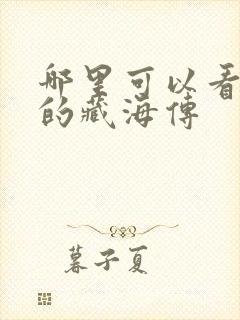 哪里可以看
的藏海传
暮子夏